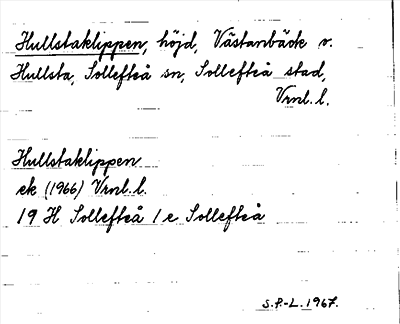 Hullstaklippen, höjd, Västanbäck v.
Hullsta, Sollefteå sn, Sollefteå stad,
Vrnl. l.
Hullstaklippen
ek (1966) Vrnl. l.
19 H Sollefteå 1 e Sollefteå
S.P-L. 1967.